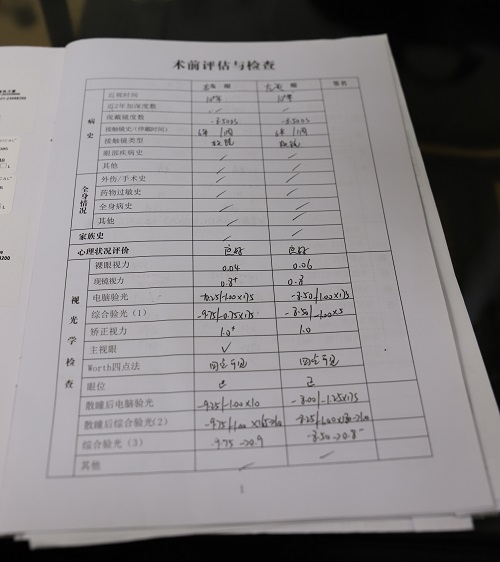 术前评估与检查
右 眼 左 眼 签名
病史
近视时间 10年 10年
近2年加深度数 / /
现戴镜度数 -8.50DS -8.50DS
接触镜史/(停戴时间) 6年 1周 6年 1周
接触镜类型 软镜 软镜
眼部疾病史 / /
其他 / /
全身情况
外伤/手术史 / /
药物过敏史 / /
全身病史 / /
其他 / /
家族史 / /
心理状况评价 良好 良好
视光学检查
裸眼视力 0.04 0.06
现镜视力 0.8⁺ 0.8
电脑验光 -1.00×175 -8.50/-1.00×175
综合验光(1) -9.75/-0.75×175 -8.50/-1.00×5
矫正视力 1.0⁺ 1.0
主视眼 ✓
Worth四点法
眼位 正 正
散瞳后电脑验光 -9.25/-1.00×10 -8.00/-1.25×175
散瞳后综合验光(2) -9.75/-1.00 -8.25/-1.00
综合验光(3) -9.75→0.9 -8.50→0.8⁻
其他 / /
1